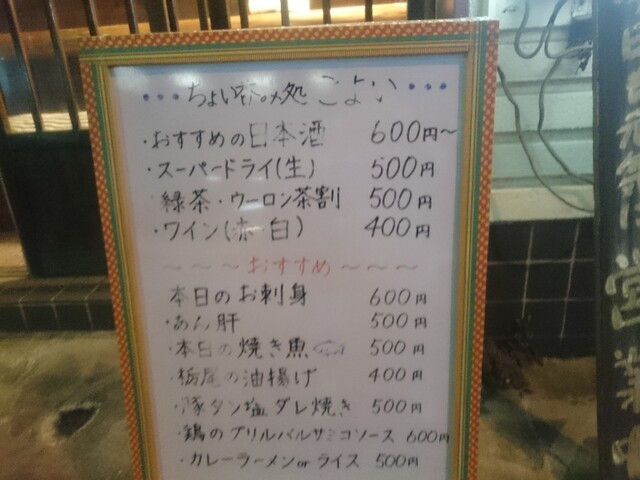 •••ちょい呑み処 こよい•••
・おすすめの日本酒 600円〜
・スーパードライ(生) 500円
緑茶・ウーロン茶割 500円
・ワイン(赤・白) 400円
〜〜〜おすすめ〜〜〜
本日のお刺身 600円
・あん肝 500円
・本日の焼き魚 500円
・栃尾の油揚げ 400円
・豚タン塩ダレ焼き 500円
・鶏のグリルバルサミコソース 600円
・カレーラーメンorライス 500円
営業中